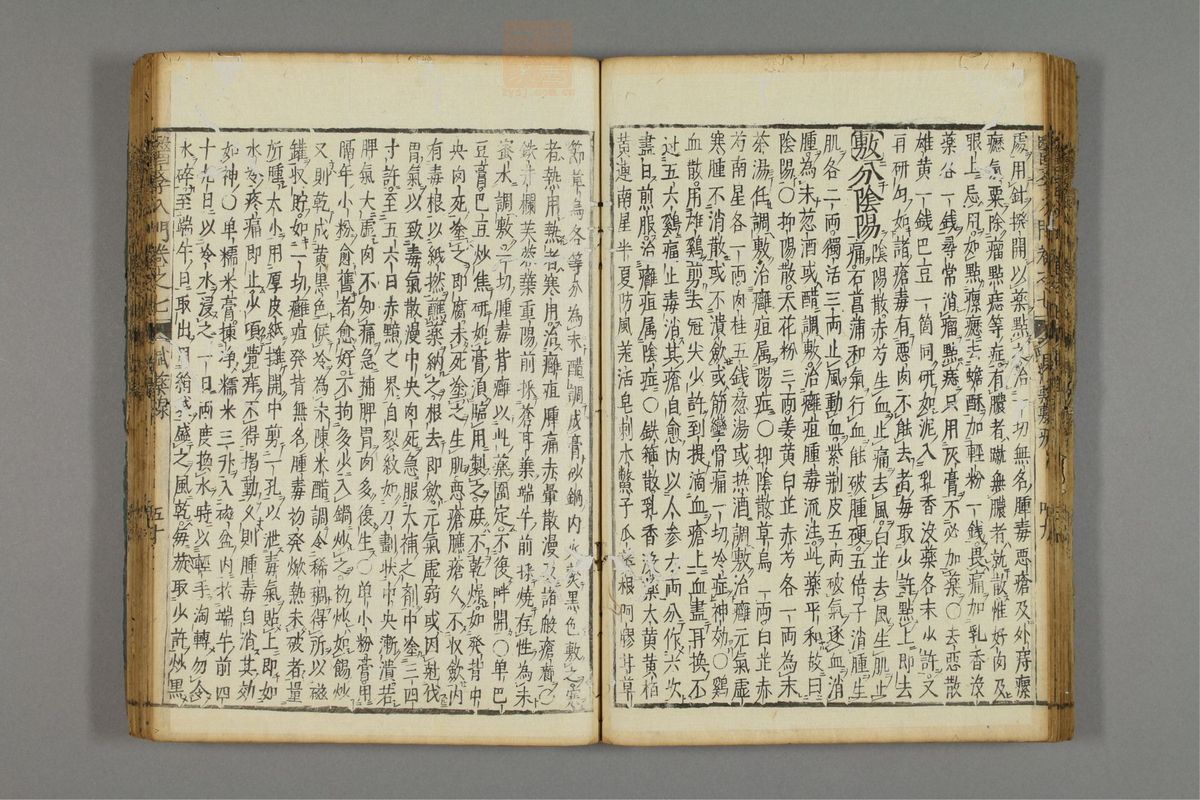 處用針撥開以藥點之治一切無名腫毒惡瘡及外痔瘰
癧氣粟除瘤點痣等症有膿者
眼上忌用如點瘰癧去蟾酥加輕粉一錢畏痛加乳香沒
藥各一錢尋常消瘤點痣只用灰膏不必加藥〇去惡散
雄黃一錢巴豆一箇同研如泥入乳香沒藥各末少許又
再研勻如諸瘡毒有惡肉不能去者每取少許點上即去
敷分陰陽陰陽散赤芍生血止痛去風白芷去風生肌止
痛石菖蒲和氣行血能破腫硬五倍子消腫生
肌各二兩獨活三兩止風動血紫荊皮五兩破氣逐血消
腫為末蔥酒或醋調敷治癰疽腫毒流注此藥平和故曰
陰陽〇抑陽散天花粉三兩姜黃白芷赤芍各一兩為末
茶湯任調敷治癰疽屬陽症〇抑陰散草烏一兩白芷赤
芍南星各一兩肉桂五錢蔥湯或熱酒調敷治癰元氣虛
寒腫不消散或不潰斂或筋攣骨痛一切冷症神効〇鷄
血散用雄鷄剪去冠尖少許倒提滴血瘡上血盡再換不
過五六鷄痛止毒消其瘡自愈內以人參六兩分作六次
晝白煎服治癰疽屬陰症〇鉄箍散乳香沒藥大黃黃柏
黃連南星半夏防風羌活皂刺木鱉子瓜蔞根阿膠甘草
節草烏各等分為末醋調成膏砂鍋內火熬黑色敷之寒
者熱用熱者寒用治癰疽腫痛赤暈散漫及諸般瘡癤〇
鉄井欄芙蓉葉重陽前採蒼耳葉端午前採燒存性為末
蜜水調敷一切腫毒背癰以此藥圍定不復畔開〇單巴
豆膏巴豆炒焦研如膏須臨用製之庶不乾燥如發背中
央肉死塗之即腐未死塗之生肌惡瘡臁瘡久不收斂內
有毒根以紙撚蘸藥納之根去即斂元氣虛弱或因剋伐
胃氣以致毒氣散漫中央肉死急服大補之劑中塗三四
寸許至五六日赤黯之界自裂紋如刀劃狀中央漸潰若
脾氣大虛肉不知痛急補脾胃肉多復生〇單小粉膏用
隔年小粉愈舊者愈好不拘多少入鍋炒之初炒如餳炒
又則乾成黃黑色候冷為末陳米醋調令稀稠得所以磁
鑵收貯如一切癰疽發背無名腫毒初發焮熱未破者量
所腫大小用厚皮紙攤開中剪一孔以泄毒氣貼上即如
水冷疼痛即止少頃覺痒不得揭動久則腫毒自消其効
如神〇單糯米膏揀淨糯米三升入磁盆內於端午前四
十九日以冷水浸之一日兩度換水時以輕手淘轉勿令
水碎至端午日取出用絹袋盛之風乾每旋取少許炒黑